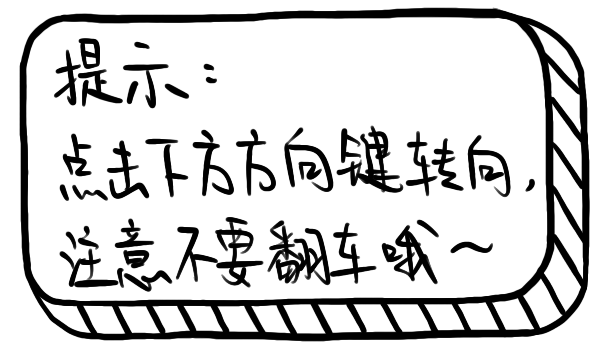 提示：
点击下方方向键转向，
注意不要翻车哦～